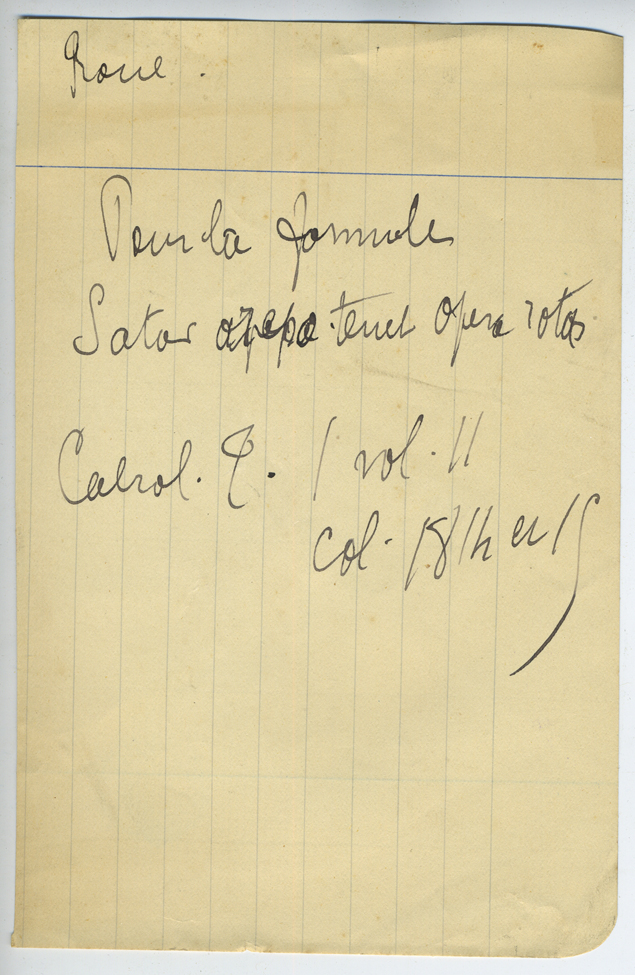 Roue.
Pour la formule
Sator arepo tenet opera rotas
Cabrol. T. 1 vol. 11
col. 1814 et 15